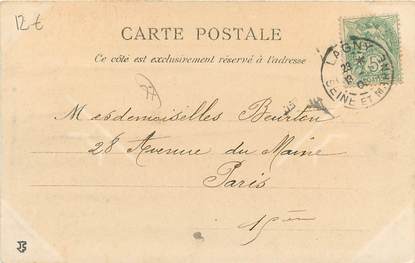 12 €
CARTE POSTALE
Ce côté est exclusivement réservé à l'adresse
LAGNY
SEINE ET MARNE
5
Mesdemoiselles Bourton
28 Avenue du Maine
Paris
15ème